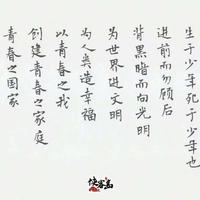 生于少年死于少年也
进前而勿顾后
背黑暗而向光明
为世界进文明
为人类造幸福
以青春之我
创建青春之家庭
青春之国家